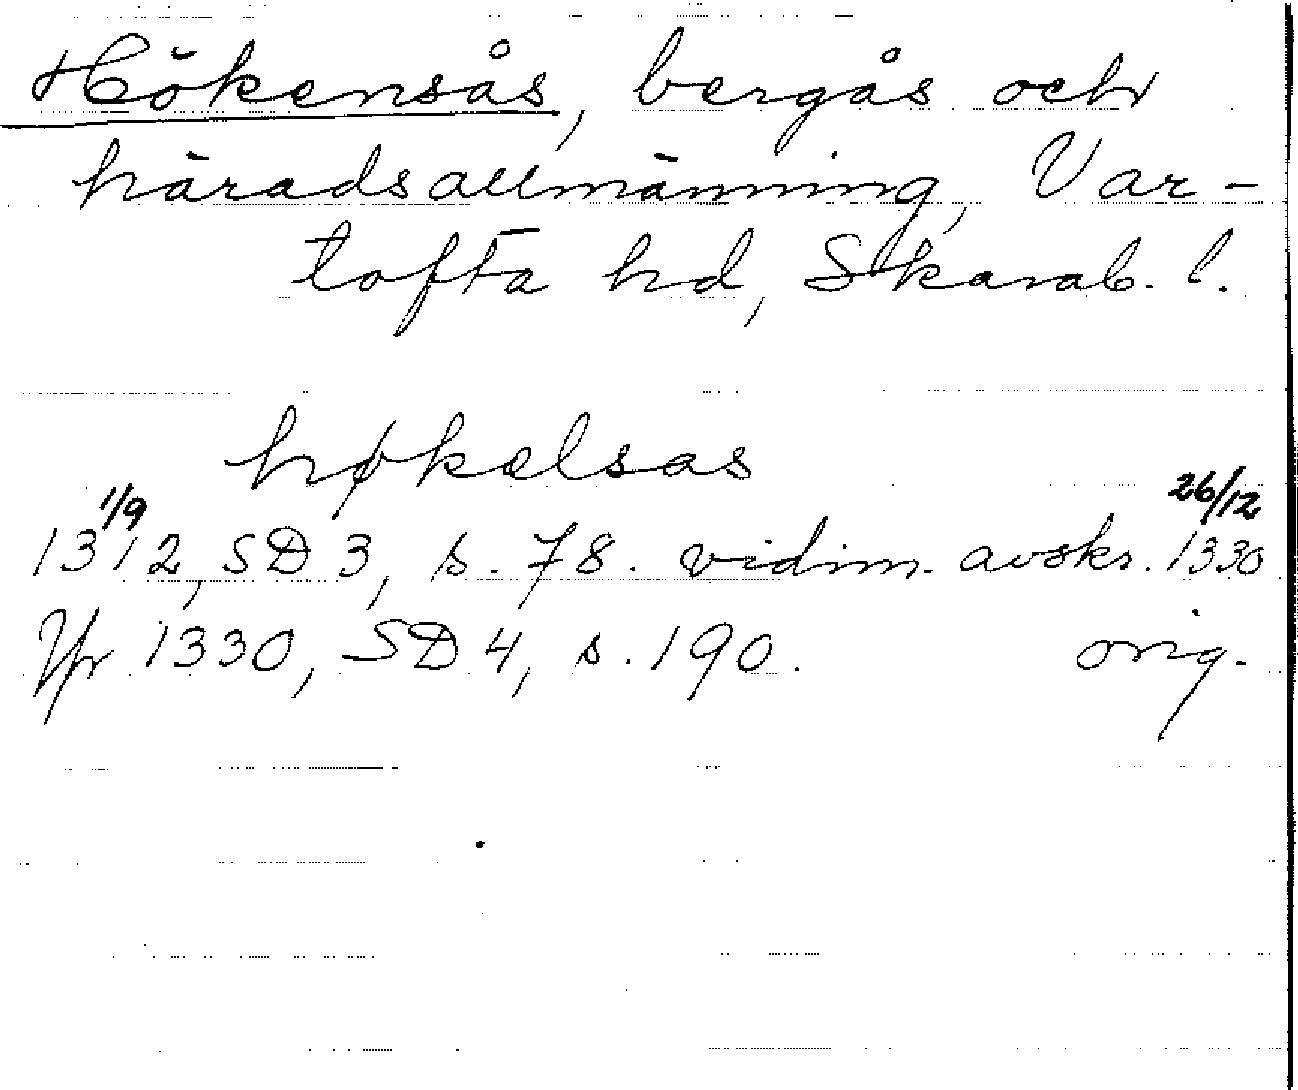 Hökensås, bergås och
häradsallmänning, Var-
tofta hd, Skarab. l.
høkelsas
1/9 26/12
1312, SD 3, s. 78. vidim. avskr. 1330
1330, SD 4, s. 190. orig.